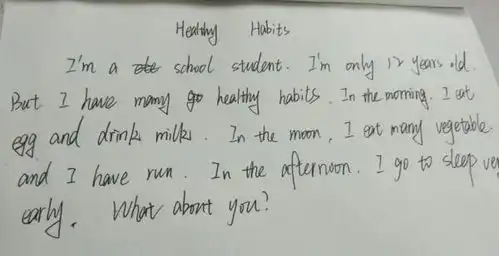 Healthy Habits
I'm a school student. I'm only 12 years old.
But I have many healthy habits. In the morning. I eat
egg and drink milk. In the moon, I eat many vegetable
and I have run. In the afternoon. I go to sleep very
early. What about you?